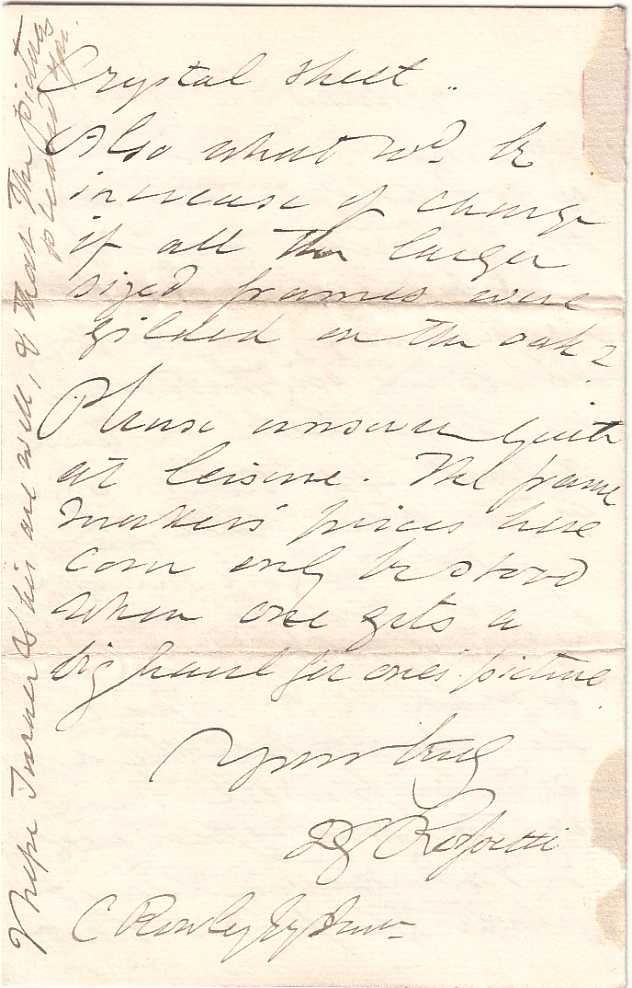 Crystal sheet.
Also what wd. be
increase of charge
if all the larger
sized frames were
gilded on the oak?
Please answer quite
at leisure. The frame
makers' prices here
can only be stood
when one gets a
big haul for one's picture
Yours truly
DG Rossetti
C Rowley Jr
I hope Turner & his are well, & that the pictures
pleased you.